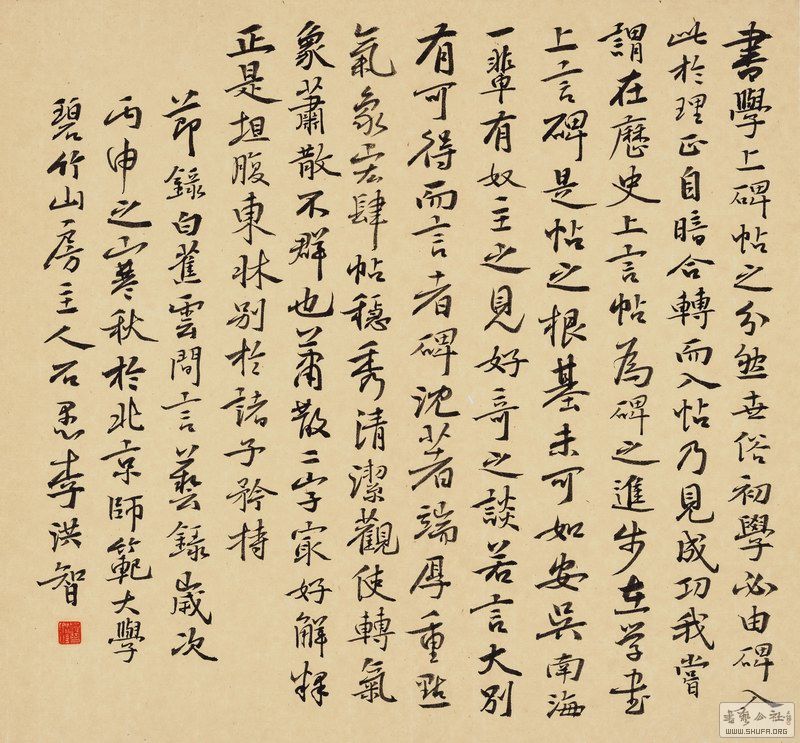 書學上碑帖之分然世俗初學必由碑入
此於理正自暗合轉而入帖乃見成功我嘗
謂在歷史上言帖為碑之進步在学書
上言碑是帖之根基未可如安吳南海
一輩有奴主之見好奇之談若言大別
有可得而言者碑沈著端厚重點
氣象宏肆帖穩秀清潔觀使轉氣
象蕭散不群也蕭散二字最好解釋
正是坦腹東牀別於諸子矜持
節錄白蕉雲間言藝錄歲次
丙申之山莫秋於北京師範大學
碧竹山房主人石愚李洪智
書法公社
WWW.SHUFA.ORG